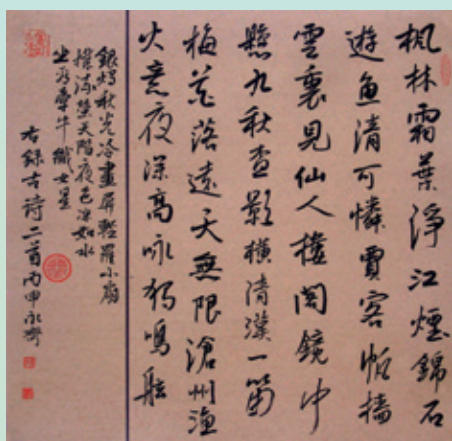 楓林霜葉淨江煙錦石
遊魚清可憐賈客帆檣
雲裏見仙人樓閣鏡中
懸九秋查影橫清漢一笛
梅花落遠天無限滄州漁
父意夜深高咏独鳴舷
銀燭秋光冷畫屏輕羅小扇
撲流螢天階夜色凉如水
坐看牽牛織女星
右錄古诗二首丙申永